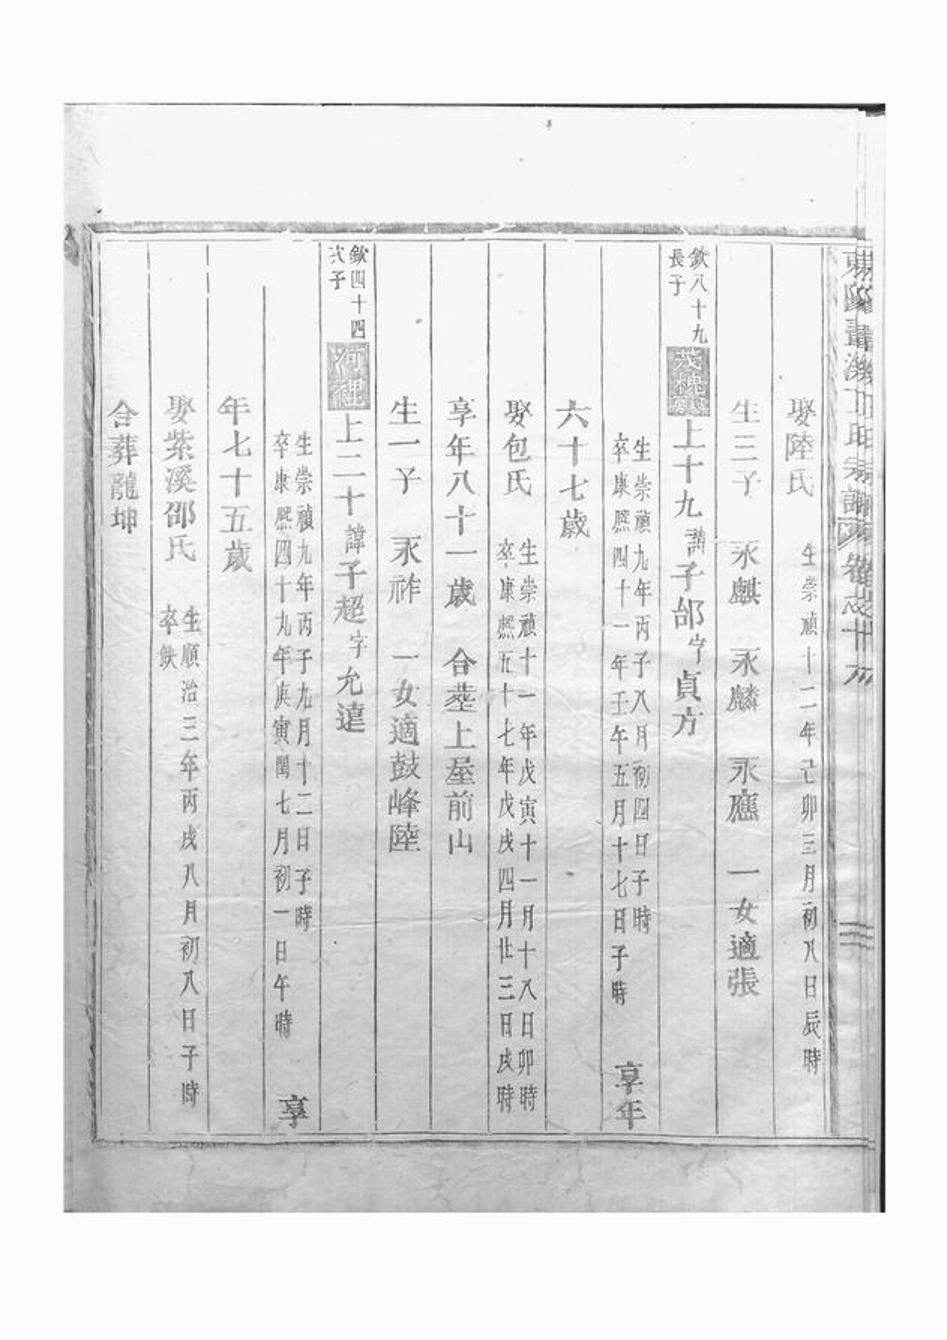 娶陸氏 生崇禎十二年己卯三月初八日辰時
生三子 永麒 永麟 永應 一女適張
欽八十九
長子
茂槐
上十九 諱子邰 字貞方
生崇禎九年丙子八月初四日子時
卒康熈四十一年壬午五月十七日子時
享年
六十七歲
娶包氏
生崇禎十一年戊寅十一月十八日卯時
卒康熈五十七年戊戌四月廿三日戌時
享年八十一歲 合塟上屋前山
生一子 永祚 一女適鼓峰陸
欽四十四
次子
河裡
上二十 諱子超 字允遠
生崇禎九年丙子九月十二日子時
卒康熈四十九年庚寅閏七月初一日午時
享
年七十五歲
娶紫溪邵氏
生順治三年丙戌八月初八日子時
卒缺
合葬龍坤